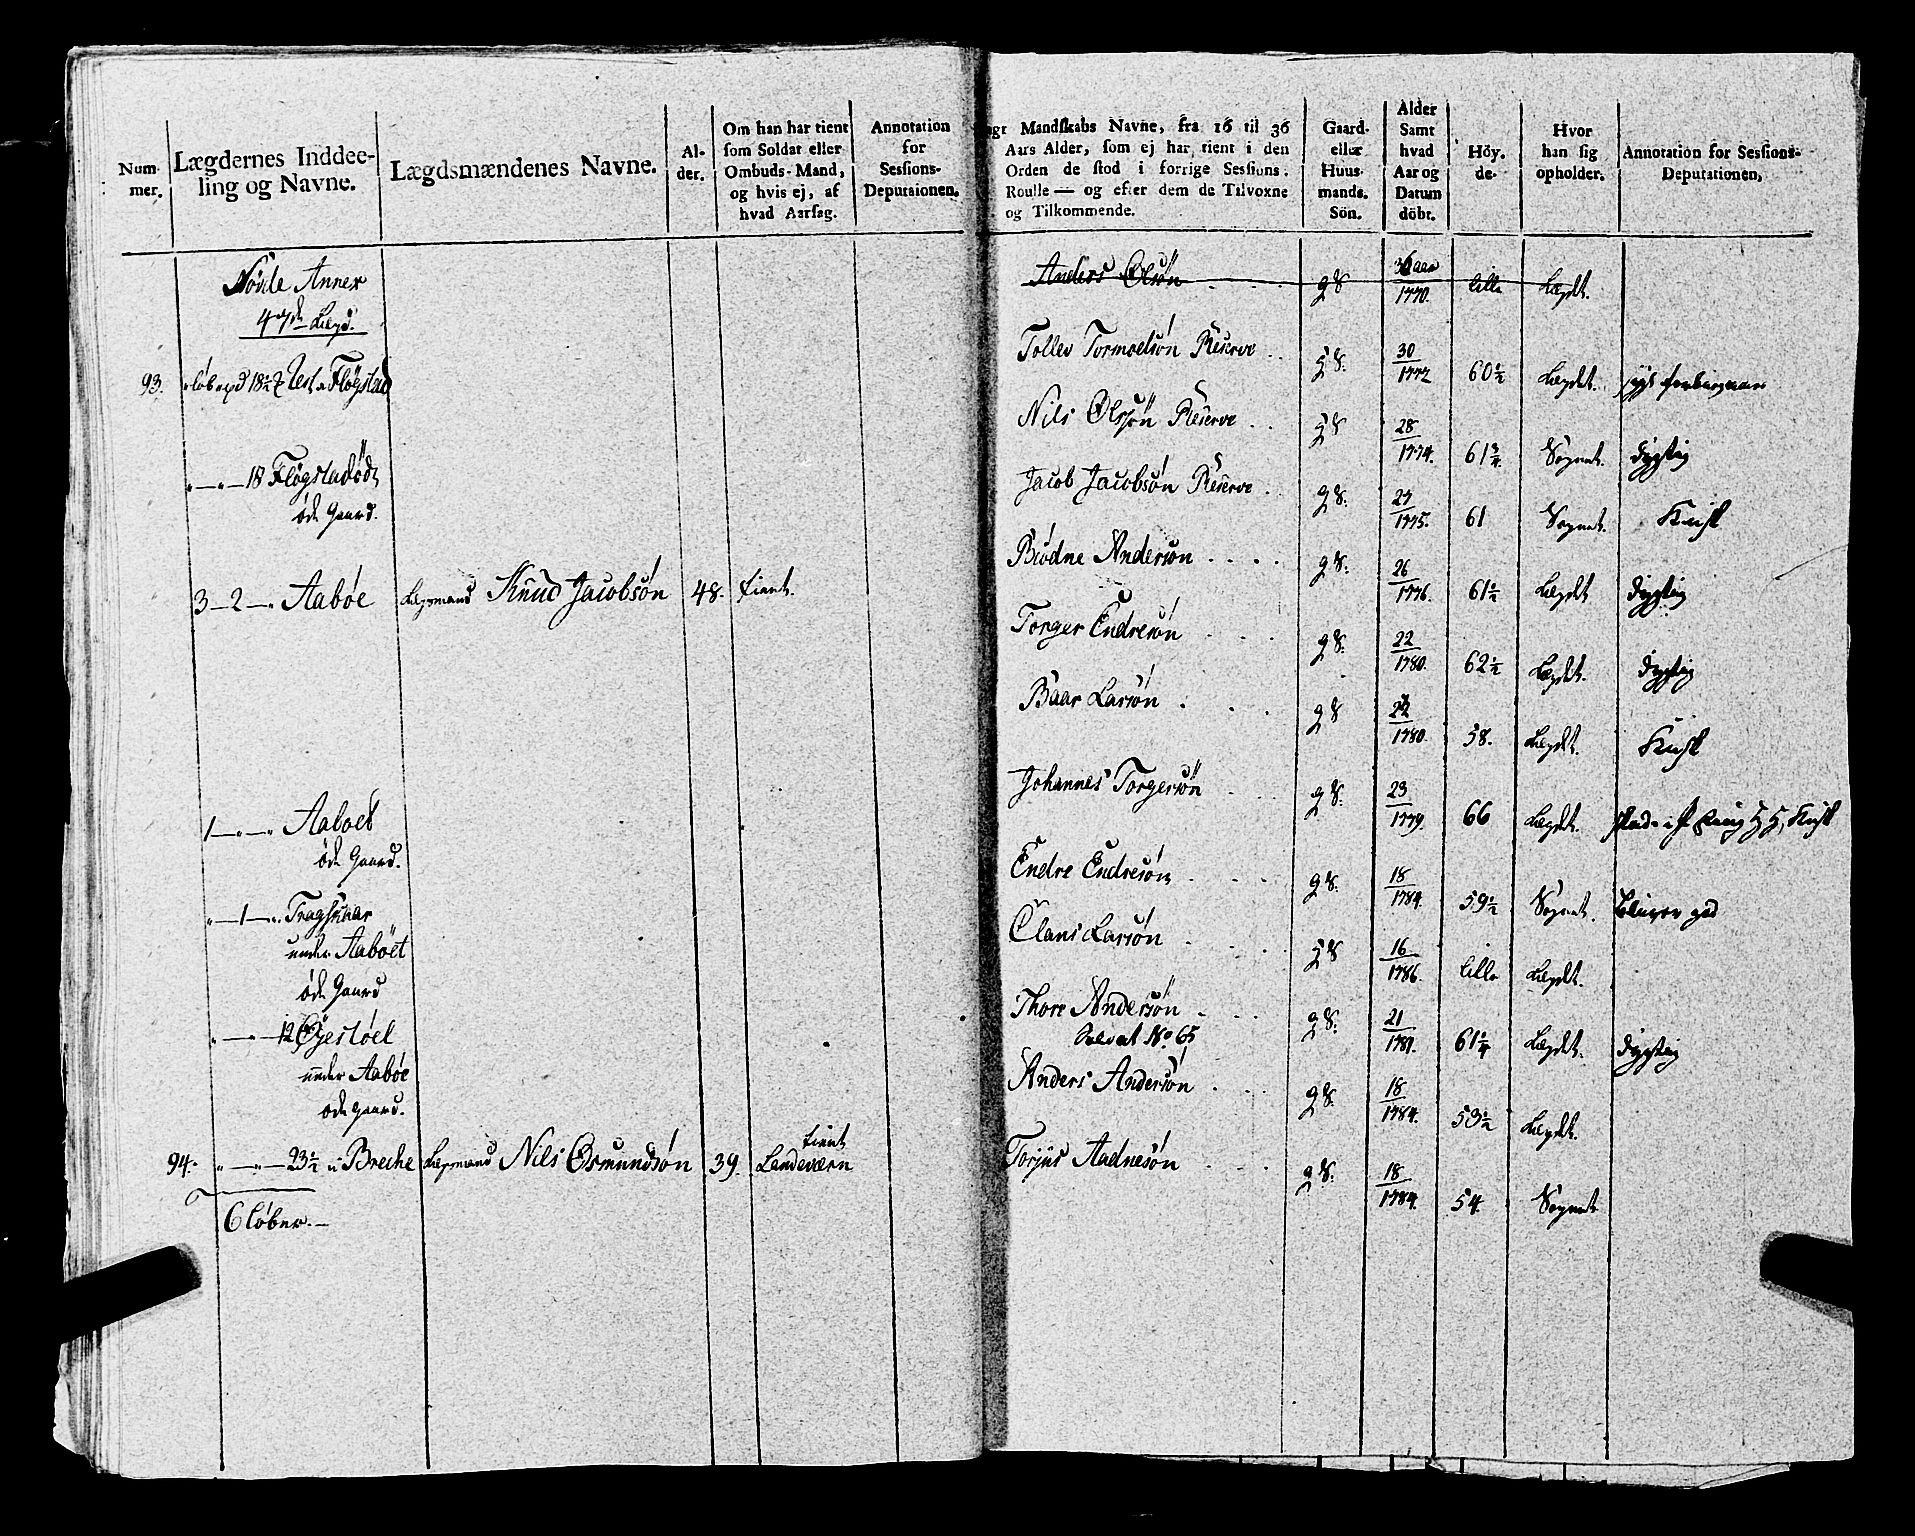 Num-
mer.
Lægdernes Inddee-
ling og Navne.
Lægdsmændenes Navne.
Al-
der.
Om han har tient
som Soldat eller
Ombuds-Mand,
og hvis ej, af
hvad Aarsag.
Annotation
for
Sessions-
Deputaionen.
Nóvle Annex
47de Lægd.
93.
Flógstad
18 Flógstadód
óde Gaard.
3 — 2 — " Aabóe
Lægsmand Knud Jacobsón
48.
tient.
1 — " — " Aaboet
óde Gaard.
" — 1 — "
under Aabóet
óde Gaard
" — " — 12
under Aabóe
óde gaard.
94.
" — " — 23½ " Breche
Lægsmand Nils Osmundsón
39.
tient
Landeværn
6 lóber. —
Mandskabs Navne, fra 16 til 36
Aars Alder, som ej har tient i den
Orden de stod i forrige Sessions-
Roulle — og efter dem de Tilvoxne
og Tilkommende.
Gaard-
eller
Huus-
mands-
Sön.
Alder
Samt
hvad
Aar og
Datum
döbt.
Höy-
de-
Hvor
han sig
opholder.
Annotation for Sessions-
Deputationen,
Anders Olsón
36 aar
1770.
lille
Lægdet.
Tollev Tormodsón Reserve
30
1772
60½
Lægdet.
Nils Olssón Reserve
28
1774.
61¾
Sognet.
dygtig
Jacob Jacobsón Reserve
27
1775.
61
Sognet.
Bródne Andersón
26
1776.
61½
Lægdet
dygtig
Torger Endresón
22
1780.
62½
Lægdet.
dygtig
Baar Larsón
22
1780.
58.
Lægdet.
Johannes Torgersón
23
1779.
66
Lægdet.
Endre Endresón
18
1784.
59½
Sognet.
Clans Larsón
16
1786.
lille
Lægdet.
Thore Andersón
21
1781.
61¼
Lægdet.
dygtig
No 65
Anders Andersón
18
1784.
53½
Lægdet.
Torjus Aadnesón
18
1784.
54.
Sognet